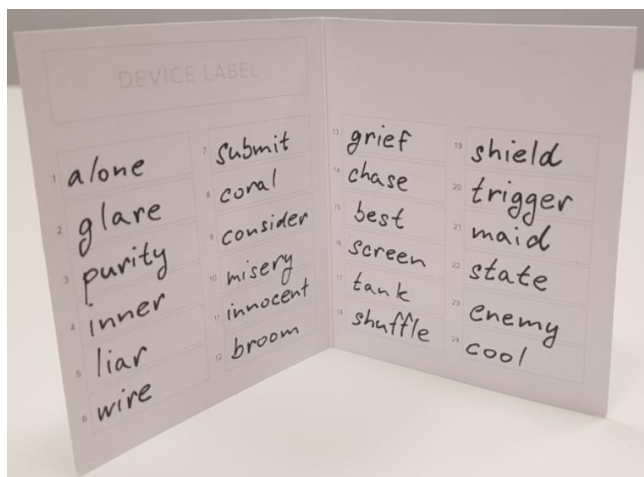 DEVICE LABEL
1 alone
2 glare
3 purity
4 inner
5 liar
6 wire
7 submit
8 coral
9 consider
10 misery
11 innocent
12 broom
13 grief
14 chase
15 best
16 screen
17 tank
18 shuffle
19 shield
20 trigger
21 maid
22 state
23 enemy
24 cool